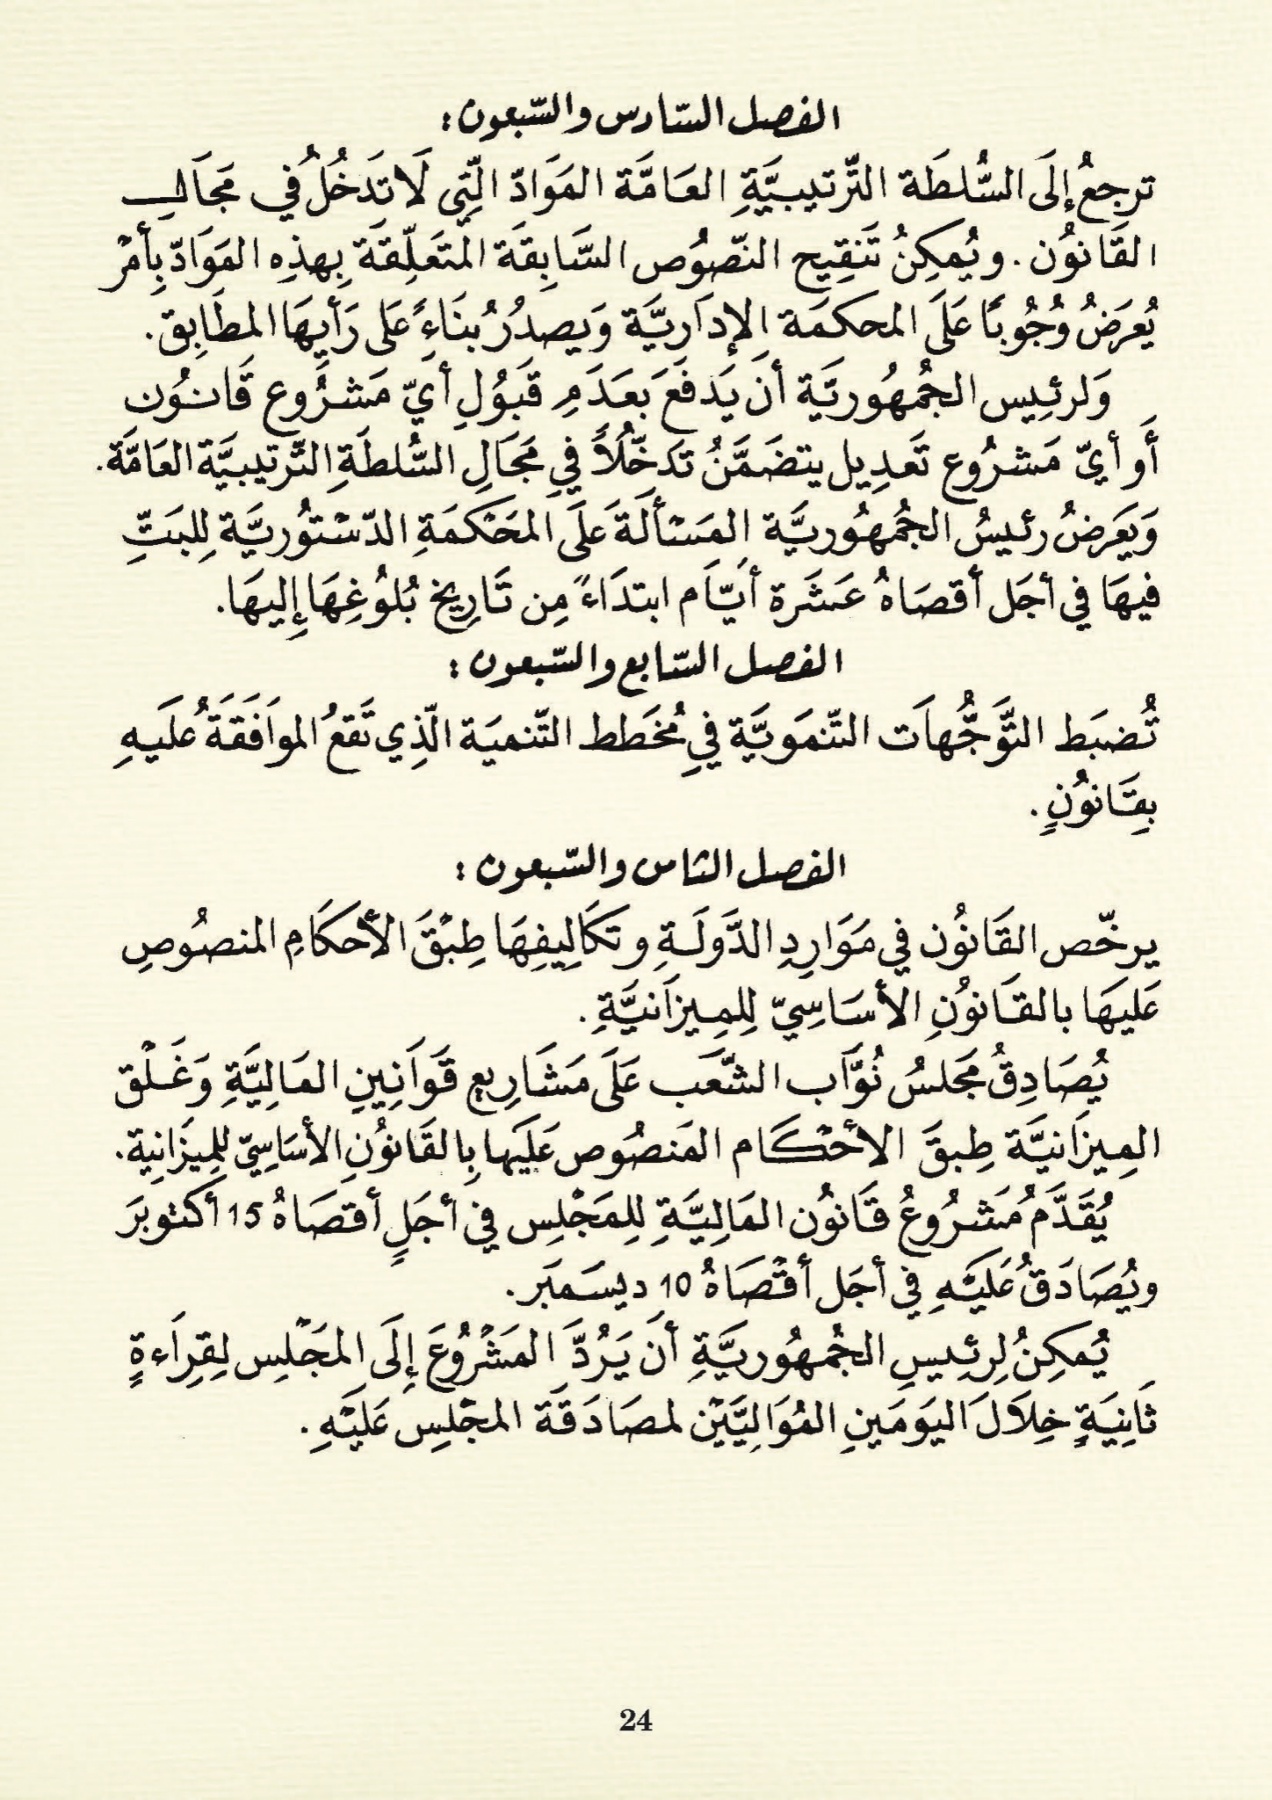 الفصل السّادس والسّبعون :
ترجعُ إلَى السُّلطَة التّرتيبيَّةِ العَامَّة المَوَادّ الّتِي لَا تَدخُلُ في مَجَالِ
القَانُون. ويُمكِنُ تَنقِيح النّصُوص السَّابِقَة المتَعَلِّقَة بِهذِه المَوَادّ بِأمْر
يُعرَضُ وُجُوبًا عَلَى المحكمَة الإدَاريَّة وَيصدُرُ بنَاءً عَلى رَأيِهَا المطَابِق.
وَلرئيس الجُمهُوريَّة أن يَدفَعَ بعَدَمِ قَبُولِ أيّ مَشرُوع قَانُون
أَو أيّ مَشرُوع تَعدِيل يتضَمَّنُ تدَخّلاً في مَجَالِ السُّلطَةِ التَّرتيبيَّة العَامَّة.
وَيَعَرضُ رئيسُ الجُمهُوريَّة المَسْألَةَ عَلَى المَحْكمَةِ الدّسْتُوريَّة لِلبَتِّ
فيهَا في أجَل أقصَاهُ عَشَرة أيّام ابتدَاءً مِن تَارِيخ بُلُوغِهَا إِليهَا.
الفصل السّابع والسّبعون :
تُضبَط التَّوَجُّهَات التّنمَويَّة في مُخَطط التّنميَة الّذِي تَقعُ الموافَقَةُ عَلَيهِ
بقَانُونٍ.
الفصل الثامن والسّبعون :
يرخّص القَانُون في مَوَارِدِ الدَّولَةِ وتكَالِيفِهَا طِبْقَ الأحكَامِ المنصُوصِ
عَليهَا بالقَانُونِ الأسَاسِيّ لِلمِيزَانيَّةِ.
يُصَادِقُ مَجلسُ نُوَّاب الشَّعَب عَلَى مَشَارِيع قَوَانِينِ المَالِيَّةِ وَغَلْق
المِيزَانيَّة طِبقَ الأحْكَام المَنصُوص عَلَيها بِالقَانُونِ الأسَاسِيّ لِلمِيزَانِية.
يُقَدَّمُ مَشرُوعُ قَانُون المَالِيَّةِ لِلمَجْلِس في أجَلٍ أقصَاهُ 15 أكتوبرَ
ويُصَادَقُ عَلَيْهِ في أجَل أقْصَاهُ 10 ديسَمبَر.
يُمكِنُ لِرئيسِ الجُمهُوريَّةِ أن يَرُدَّ المَشْرُوعَ إِلَى المَجْلِس لِقِرَاءةٍ
ثَانِيَةٍ خِلَالَ اليَومَينِ المُوَالِيَيْن لمصَادَقَة المجْلِس عَلَيْهِ.
24